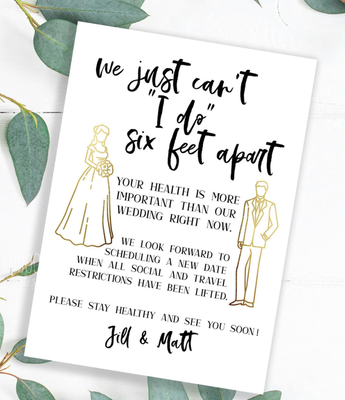 we just can't
"I do"
six feet apart
YOUR HEALTH IS MORE
IMPORTANT THAN OUR
WEDDING RIGHT NOW.
WE LOOK FORWARD TO
SCHEDULING A NEW DATE
WHEN ALL SOCIAL AND TRAVEL
RESTRICTIONS HAVE BEEN LIFTED.
PLEASE STAY HEALTHY AND SEE YOU SOON!
Jill & Matt